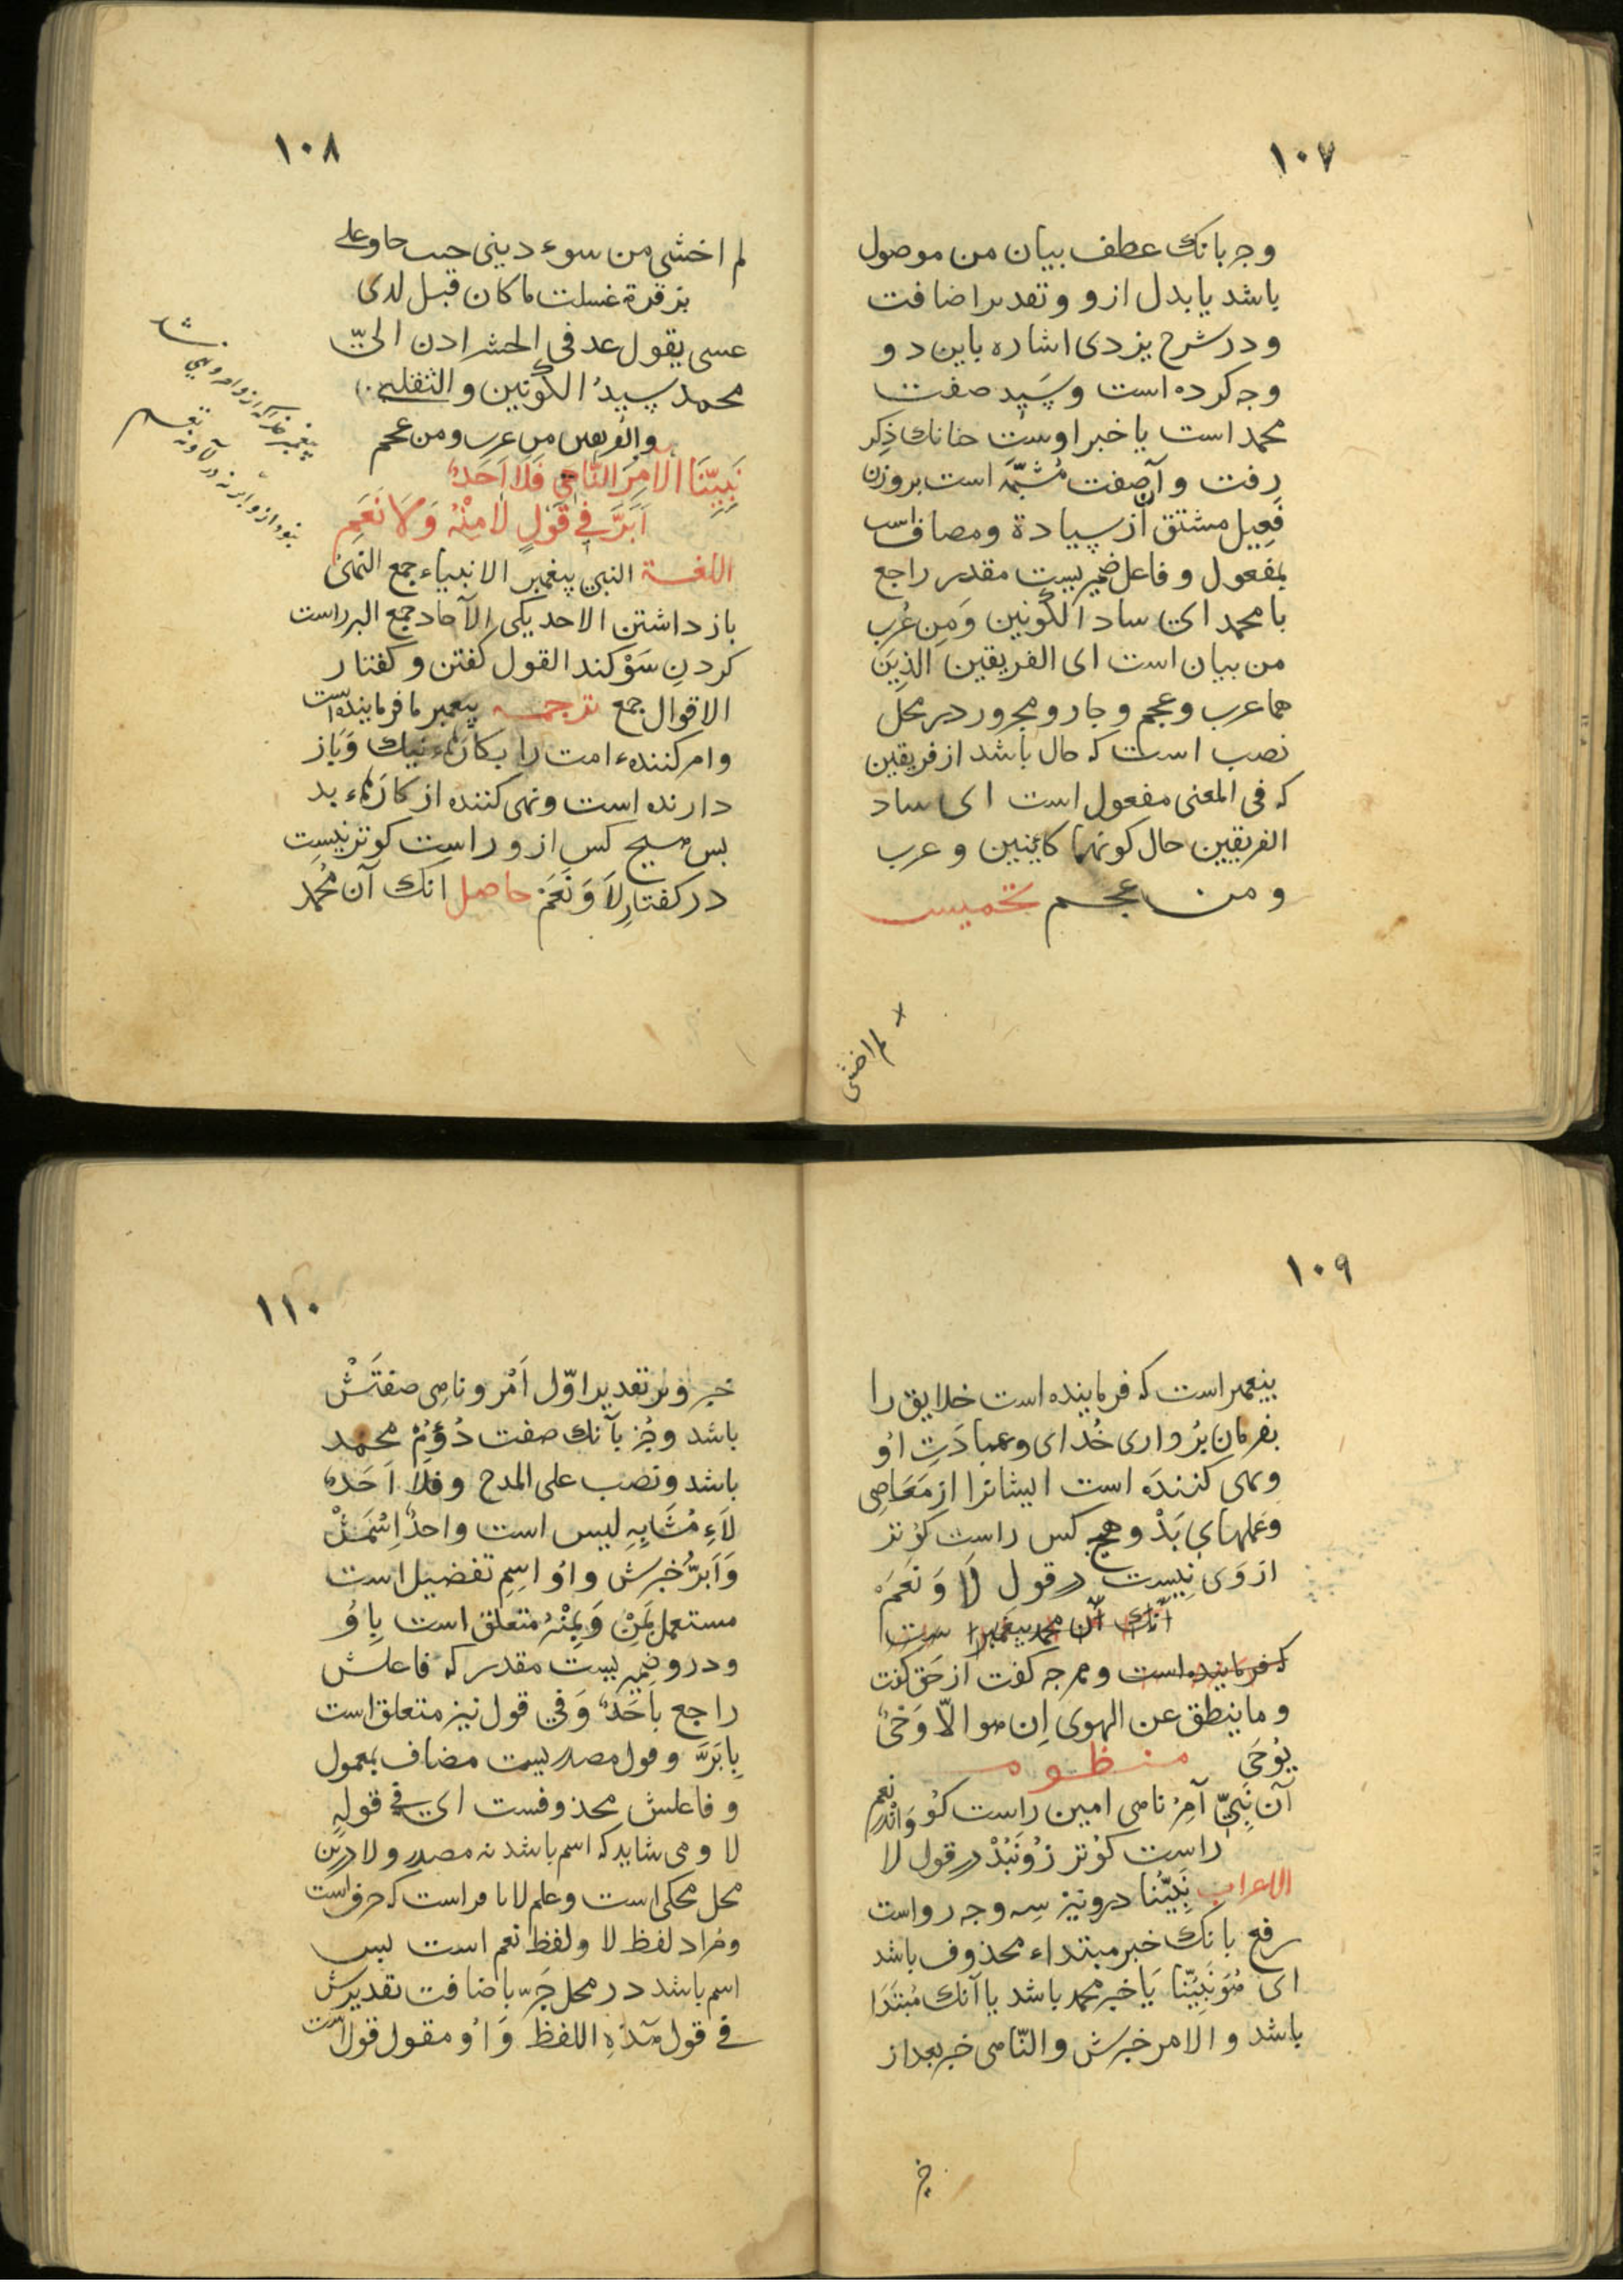 ١٠٧
وجر بانك عطف بيان من موصول
باشد يا بدل ازو وتقدير اضافت
ودر شرح يزدى اشاره باين دو
وجه كرده است وسَيِد صفت
محمد است يا خبر اوست جنانك ذِكر
رفت وآن صفت مُشبَّهه است بر وزن
فَعِيل مشتق از سيادة ومضافست
بمفعول وفاعل ضميريست مقدر راجع
با محمد اى ساد الكونين وَمِن عُرب
من بيان است اى الفريقين الذين
هما عرب وعجم وجار ومجرور در محل
نصب است كه حال باشد از فريقين
كه فى المعنى مفعول است اى ساد
الفريقين حال كونهما كاينين وعرب
ومن عجم تخميس
لم اخشى
١٠٨
لم اخشى من سوء دينى حب حاوعلى
بزقرة غسلت ما كان قبل لدى
عسى يقول عد فى الحشر ادن الىّ
محمد سيدُ الكونين والثقلين
والفريقين من عرب ومن عجم
نَبِيّنَا الآمِرُ النَّاهِي فَلَا اَحَدٌ
اَبَرَّ فِي قَوْلِ لَا مِنْهُ وَلَا نَعَمِ
اللغة النبى پيغمبر الانبياء جمع النهى
باز داشتن الاحد يكى الآحاد جمع البر راست
كردنِ سَوْكند القول كفتن وكفتار
الاقوال جمع ترجمه پيغمبر ما فرماينده است
وامر كننده امت را بكارهاء نيك وَباز
دارنده است ونهى كننده از كارهاء بد
بس هيچ كس ازو راست كوتر نيست
در كفتارِ لَا وَنَعَمْ حاصل آنك آن مُحمد
١٠٩
پيغمبر است كه فرماينده است خلايق را
بفرمان بُردارى خُداى وعبادَتِ اُو
ونهى كننده است ايشانرا از مَعَاصِى
وعملهاى بَدْ وهيچ كس راست كوتر
از وَى نيست در قول لَا وَنَعَمْ
آنك آن محمد پيغمبر است
كه فرماينده است وهرچه كفت از حَق كفت
وما ينطق عن الهوى اِن هو الّا وَحىٌ
يُوحَى منظومه
آن نَبِيّ آمِرُ ناهى امين راست كو
راست كوتر زو نَبُدْ در قول لا وَانْدر نعم
الاعراب نَبِيُّنا درو نيز سه وجه رواست
رفع بانك خبر مبتداء محذوف باشد
اى هُوَ نَبِيّنا يَا خبر محمد باشد يا آنك مُبتَدَا
باشد والامر خبرش والنّاهى خبر بعد از
خ
١١٠
خبر وبر تقدير اوّل اَمْر وناهى صفتَشْ
باشد وجُز بآنك صفت دُوُمْ محمد
باشد ونصب على المدح وفلا اَحَدٌ
لَاءِ مُشَابِهِ ليس است واحدٌ اِسْمَشْ
وَاَبَرُّ خبرش واُو اسِمِ تفضيل است
مستعمل بَمِنْ وَمِنْهُ متعلق است بِاوُ
ودرو ضميريست مقدر كه فاعلش
راجع باَحَدٌ وَفي قول نيز متعلق است
بِابَرَّ وقول مصدريست مضاف بمعمول
وفاعلش محذوفست اى فى قولِه
لا ومى شايد كه اسم باشد نه مصدر ولا درين
محل محكى است وعلم لا نا مراست كه حرف است
ومراد لفظ لا ولفظ نعم است بس
اسم باشد در محل جَرّ باضافت تقديرش
فے قول هَذِهِ اللفظ وَاُو مقول قول است